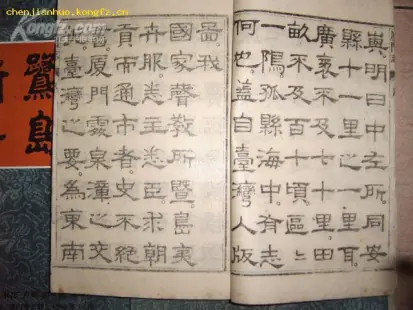 chenjianhuo.kongfz.cn
嶼明曰中左所同安
縣十一里之一里耳
廣袤不及七十里田
畝不及十頃區〻
一隅孤縣海中有志
何也蓋自臺灣入版
啚我
國家聲教所暨島夷
卉服悉主悉臣求朝
貢而通市者史不絕
書厦門處泉漳之交
臺灣之要為東南
鷺島